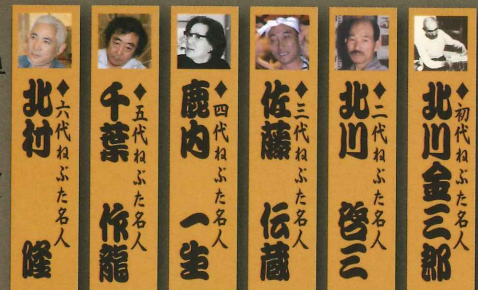 ◆初代ねぶた名人
北川金三郎
◆二代ねぶた名人
北川 啓三
◆三代ねぶた名人
佐藤 伝蔵
◆四代ねぶた名人
鹿内 一生
◆五代ねぶた名人
千葉 作龍
◆六代ねぶた名人
北村 隆